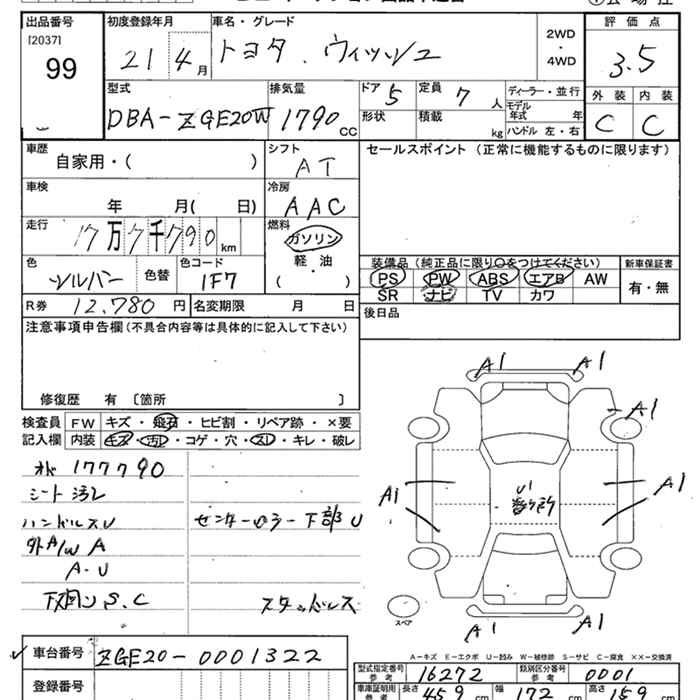 出品番号 初度登録年月 車名・グレード 評価点
[2037]
99
21 4月
トヨタ ウィッシュ
2WD
・
4WD
3.5
型式 排気量 ドア 定員 ディーラー・並行 外装 内装
DBA-ZGE20W 1790 CC
5 7人
モデル年式 年
形状 積載 kg ハンドル 左・右
C C
車歴 シフト セールスポイント (正常に機能するものに限ります)
自家用・( ) AT
車検 冷房
年 月( 日) AAC
走行 燃料
17万7千790km ガソリン
軽・油
( )
色 色替 色コード
シルバー 1F7
装備品 (純正品に限り○をつけてください) 新車保証書
PS PW ABS エアB AW 有・無
SR ナビ TV カワ
R券 12,780円 名変期限 月 日
後日品
注意事項申告欄 (不具合内容等は具体的に記入して下さい)
修復歴 有 〔箇所 〕
検査員 FW キズ・飛石・ヒビ割・リペア跡・×要
記入欄 内装 キズ・汚レ・コゲ・穴・スレ・キレ・破レ
177790
シート汚レ
ハンドルスレ
外A/W A
A・U
下回りS.C
センターピラー下部U
スタッドレス
A1 A1
A1
A1 A1
U1
A1 A1
スペア
A-キズ E-エクボ U-凹み W-補修跡 S-サビ C-腐食 ××-交換済
車台番号 ZGE20-0001322
登録番号
型式指定番号 参考 16272 類別区分番号 参考 0001
車庫証明用 参考 長さ 459cm 幅 172cm 高さ 159cm